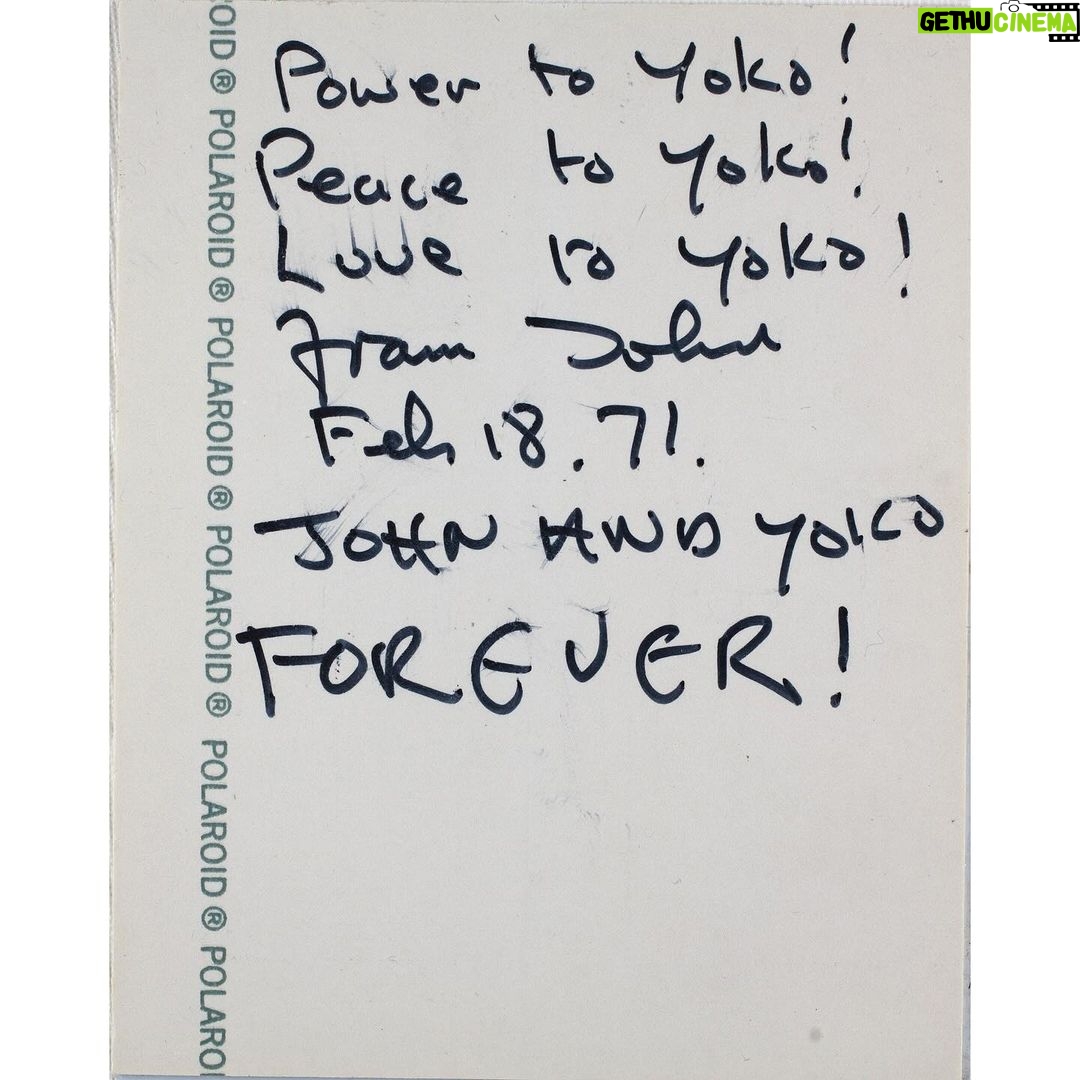 GETHUCINEMA
Power to Yoko!
Peace to Yoko!
Love to Yoko!
from John
Feb 18.71.
JOHN AND YOKO
FOREVER!
OID ® POLAROID ® POLAROID ® POLAROID ® POLAROID ® POLARO